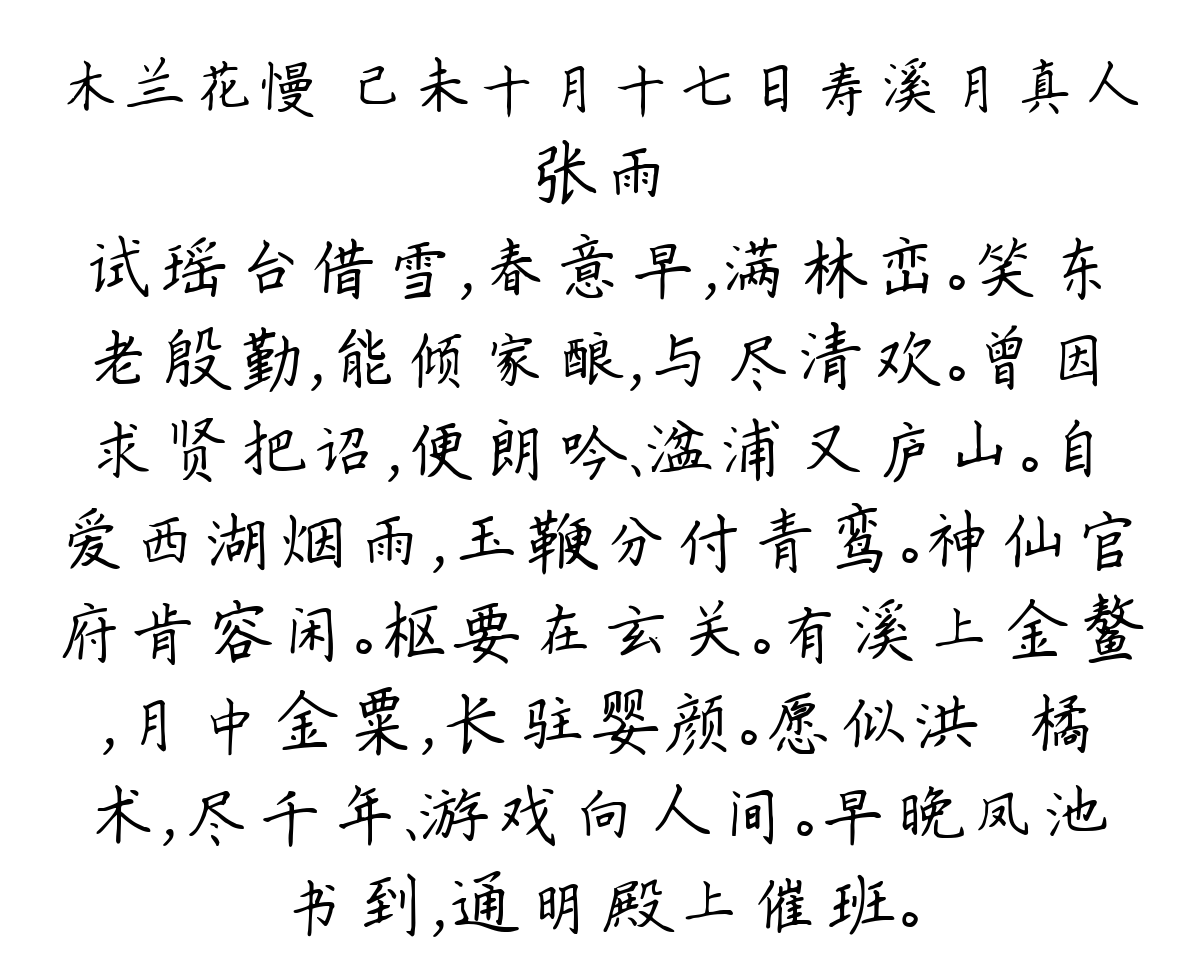 木兰花慢 己未十月十七日寿溪月真人
张雨
试瑶台借雪,春意早,满林峦。笑东
老殷勤,能倾家酿,与尽清欢。曾因
求贤把诏,便朗吟、湓浦又庐山。自
爱西湖烟雨,玉鞭分付青鸾。神仙官
府肯容闲。枢要在玄关。有溪上金鳌
,月中金粟,长驻婴颜。愿似洪 橘
术,尽千年、游戏向人间。早晚凤池
书到,通明殿上催班。